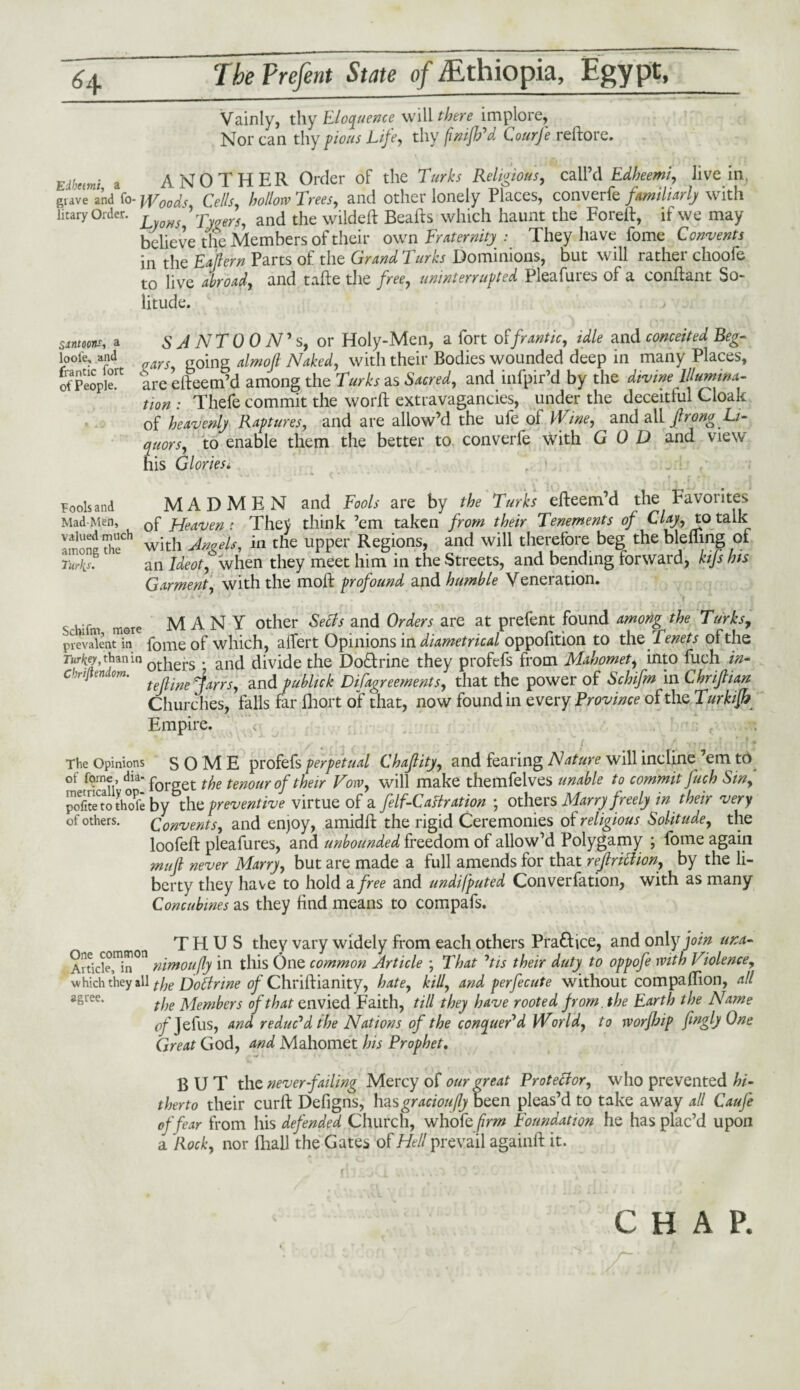 64 The Preſent State of Æthiopia, Egypt,
Vainly, thy Eloquence will there implore,
Nor can thy pious Life, thy finiſh'd Courſe reſtore.
Edheemi, a
grave and ſo-
litary Order.
ANOTHER Order of the Turks Religious, call'd Edheemi, live in
Woods, Cells, hollow Trees, and other lonely Places, converſe familiarly with
Lyons, Tygers, and the wildeſt Beaſts which haunt the Foreſt, if we may
believe the Members of their own Fraternity : They have ſome Convents
in the Eaſtern Parts of the Grand Turks Dominions, but will rather chooſe
to live abroad, and taſte the free, uninterrupted Pleaſures of a conſtant So-
litude.
Santoons, a
looſe, and
frantic ſort
of People.
SANTOON's, or Holy-Men, a ſort of frantic, idle and conceited Beg-
gars, going almoſt Naked, with their Bodies wounded deep in many Places,
are eſteem'd among the Turks as Sacred, and inſpir'd by the divine Illumina-
tion : Theſe commit the worſt extravagancies, under the deceitful Cloak
of heavenly Raptures, and are allow'd the uſe of Wine, and all ſtrong Li-
quors, to enable them the better to converſe with GOD and view
his Glories.
Fools and
Mad-Men,
valued much
among the
Turks.
MADMEN and Fools are by the Turks eſteem'd the Favorites
of Heaven : They think 'em taken from their Tenements of Clay, to talk
with Angels, in the upper Regions, and will therefore beg the bleſſing of
an Ideot, when they meet him in the Streets, and bending forward, kiſs his
Garment, with the moſt profound and humble Veneration.
Schiſm, more
prevalent in
Turkey, than in
Chriſtendom.
MANY other Sects and Orders are at preſent found among the Turks,
ſome of which, aſſert Opinions in diametrical oppoſition to the Tenets of the
others ; and divide the Doctrine they profeſs from Mahomet, into ſuch in-
teſtine Jarrs, and publick Diſagreements, that the power of Schiſm in Chriſtian
Churches, falls far ſhort of that, now found in every Province of the Turkiſh
Empire.
The Opinions
of ſome, dia-
metrically op-
poſite to thoſe
of others.
SOME profeſs perpetual Chaſtity, and fearing Nature will incline 'em to
forget the tenour of their Vow, will make themſelves unable to commit ſuch Sin,
by the preventive virtue of a ſelf-Caſtration ; others Marry freely in their very
Convents, and enjoy, amidſt the rigid Ceremonies of religious Solitude, the
looſeſt pleaſures, and unbounded freedom of allow'd Polygamy ; ſome again
muſt never Marry, but are made a full amends for that reſtriction, by the li-
berty they have to hold a free and undiſputed Converſation, with as many
Concubines as they find means to compaſs.
One common
Article, in
which they all
agree.
THUS they vary widely from each others Practice, and only join una-
nimouſly in this One common Article ; That 'tis their duty to oppoſe with Violence,
the Doctrine of Chriſtianity, hate, kill, and perſecute without compaſſion, all
the Members of that envied Faith, till they have rooted from the Earth the Name
of Jeſus, and reduc'd the Nations of the conquer'd World, to worſhip ſingly One
Great God, and Mahomet his Prophet.
BUT the never-failing Mercy of our great Protector, who prevented hi-
therto their curſt Deſigns, has graciouſly been pleas'd to take away all Cauſe
of fear from his defended Church, whoſe firm Foundation he has plac'd upon
a Rock, nor ſhall the Gates of Hell prevail againſt it.
CHAP.